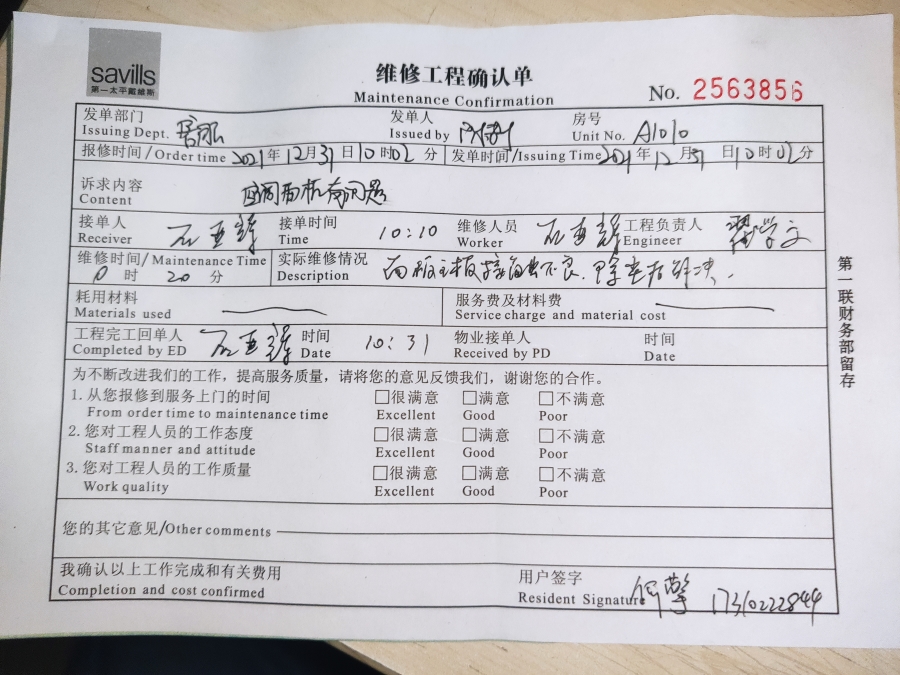 savills
第一太平戴维斯
维修工程确认单
Maintenance Confirmation
No. 2563856
发单部门 发单人 房号
Issuing Dept. 客服 Issued by Unit No. A1010
报修时间/Order time 2021年12月31日10时02分 发单时间/Issuing Time 2021年12月31日10时02分
诉求内容
Content 空调面板有问题
接单人 接单时间 维修人员 工程负责人
Receiver 石亚辉 Time 10:10 Worker 石亚辉 Engineer 学文
维修时间/Maintenance Time 实际维修情况
时20分 Description 面板主板接触不良.
耗用材料 服务费及材料费
Materials used Service charge and material cost
工程完工回单人 时间 物业接单人 时间
Completed by ED 石亚辉 Date 10:31 Received by PD Date
为不断改进我们的工作，提高服务质量，请将您的意见反馈我们，谢谢您的合作。
1.从您报修到服务上门的时间 □很满意 □满意 □不满意
From order time to maintenance time Excellent Good Poor
2.您对工程人员的工作态度 □很满意 □满意 □不满意
Staff manner and attitude Excellent Good Poor
3.您对工程人员的工作质量 □很满意 □满意 □不满意
Work quality Excellent Good Poor
您的其它意见/Other comments
我确认以上工作完成和有关费用 用户签字
Completion and cost confirmed Resident Signature 何擎 17310222844
第一联财务部留存